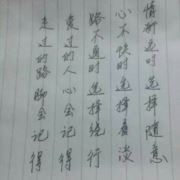 情渐远时选择随意
心不快时选择看淡
路不通时选择绕行
爱过的人心会记得
走过的路脚会记得